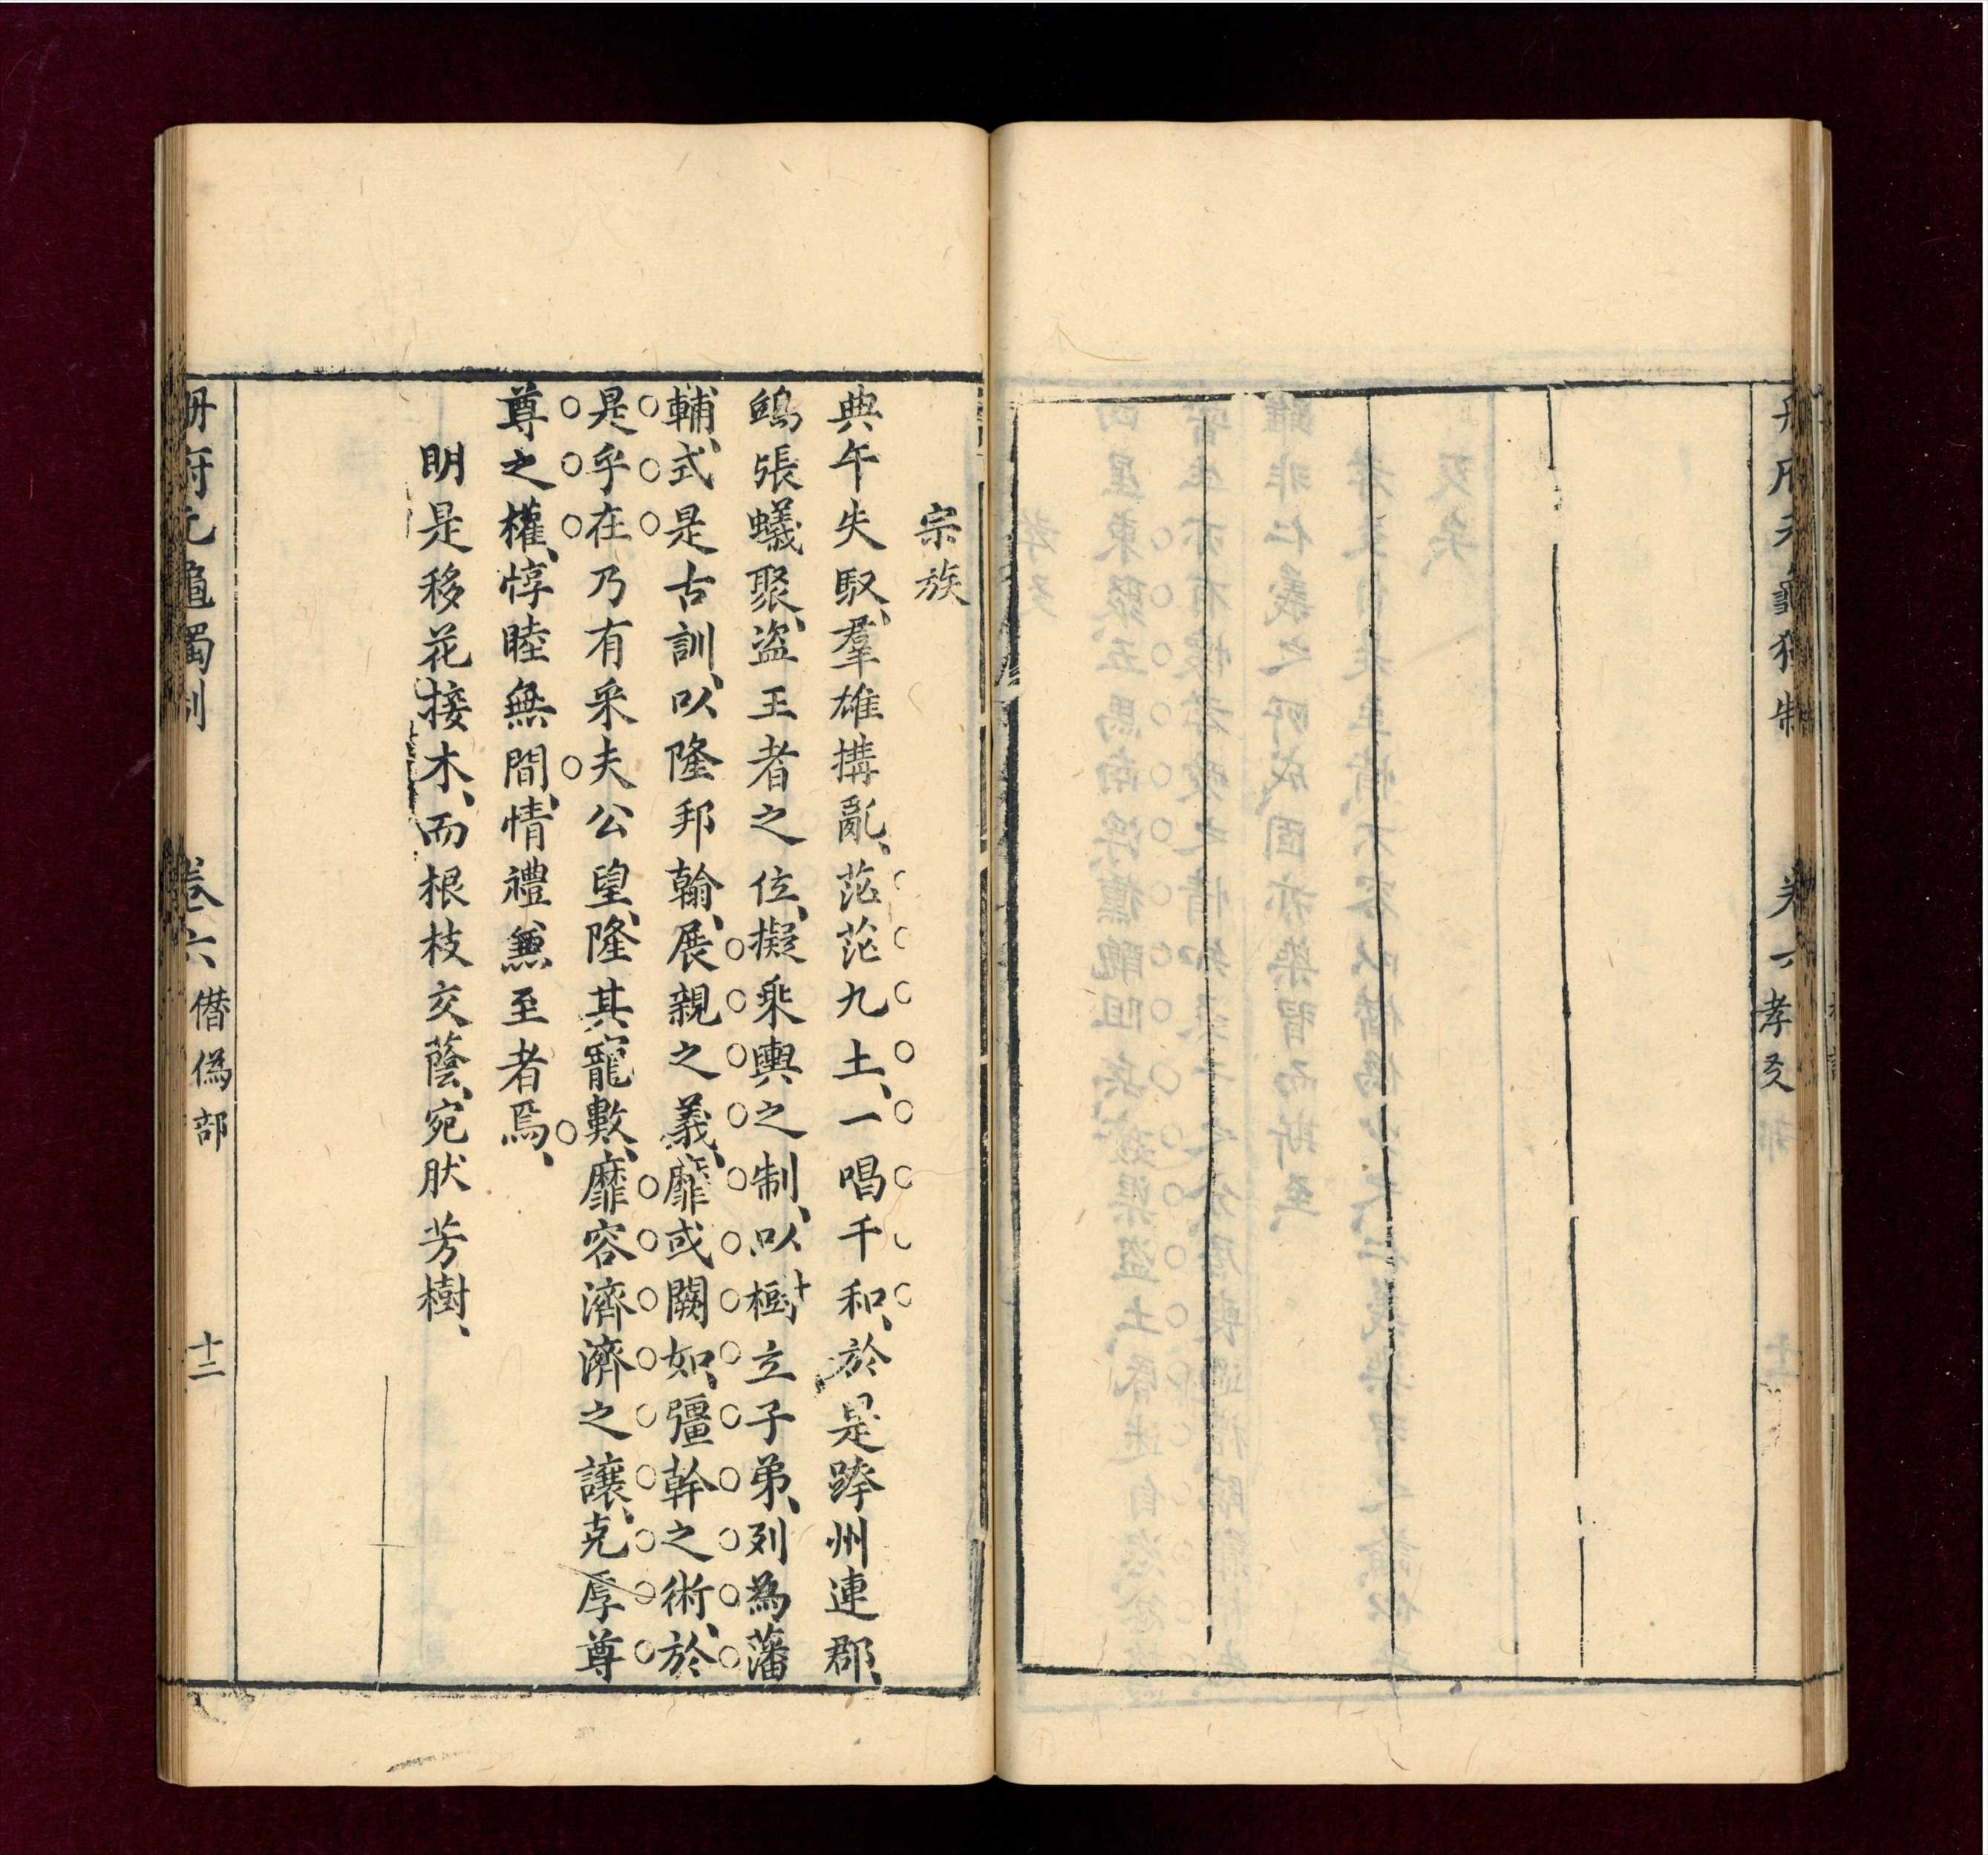 冊府元龜獨制
卷一
孝友
宗族
典午失馭、羣雄搆亂、茫茫九土、一唱千和、於是跨州連郡、
鴟張蟻聚、盜王者之位、擬乘輿之制、以樹立子弟、列為藩
輔、式是古訓、以隆邦翰、展親之義、靡或闕如、彊幹之術、於
是乎在乃有采夫公望、隆其寵數、靡容濟濟之讓、克厚尊
尊之權、惇睦無間、情禮兼至者焉、
明是移花接木、而根枝交蔭、宛肰芳樹、
冊府元龜獨制
卷六
僭偽部
十二